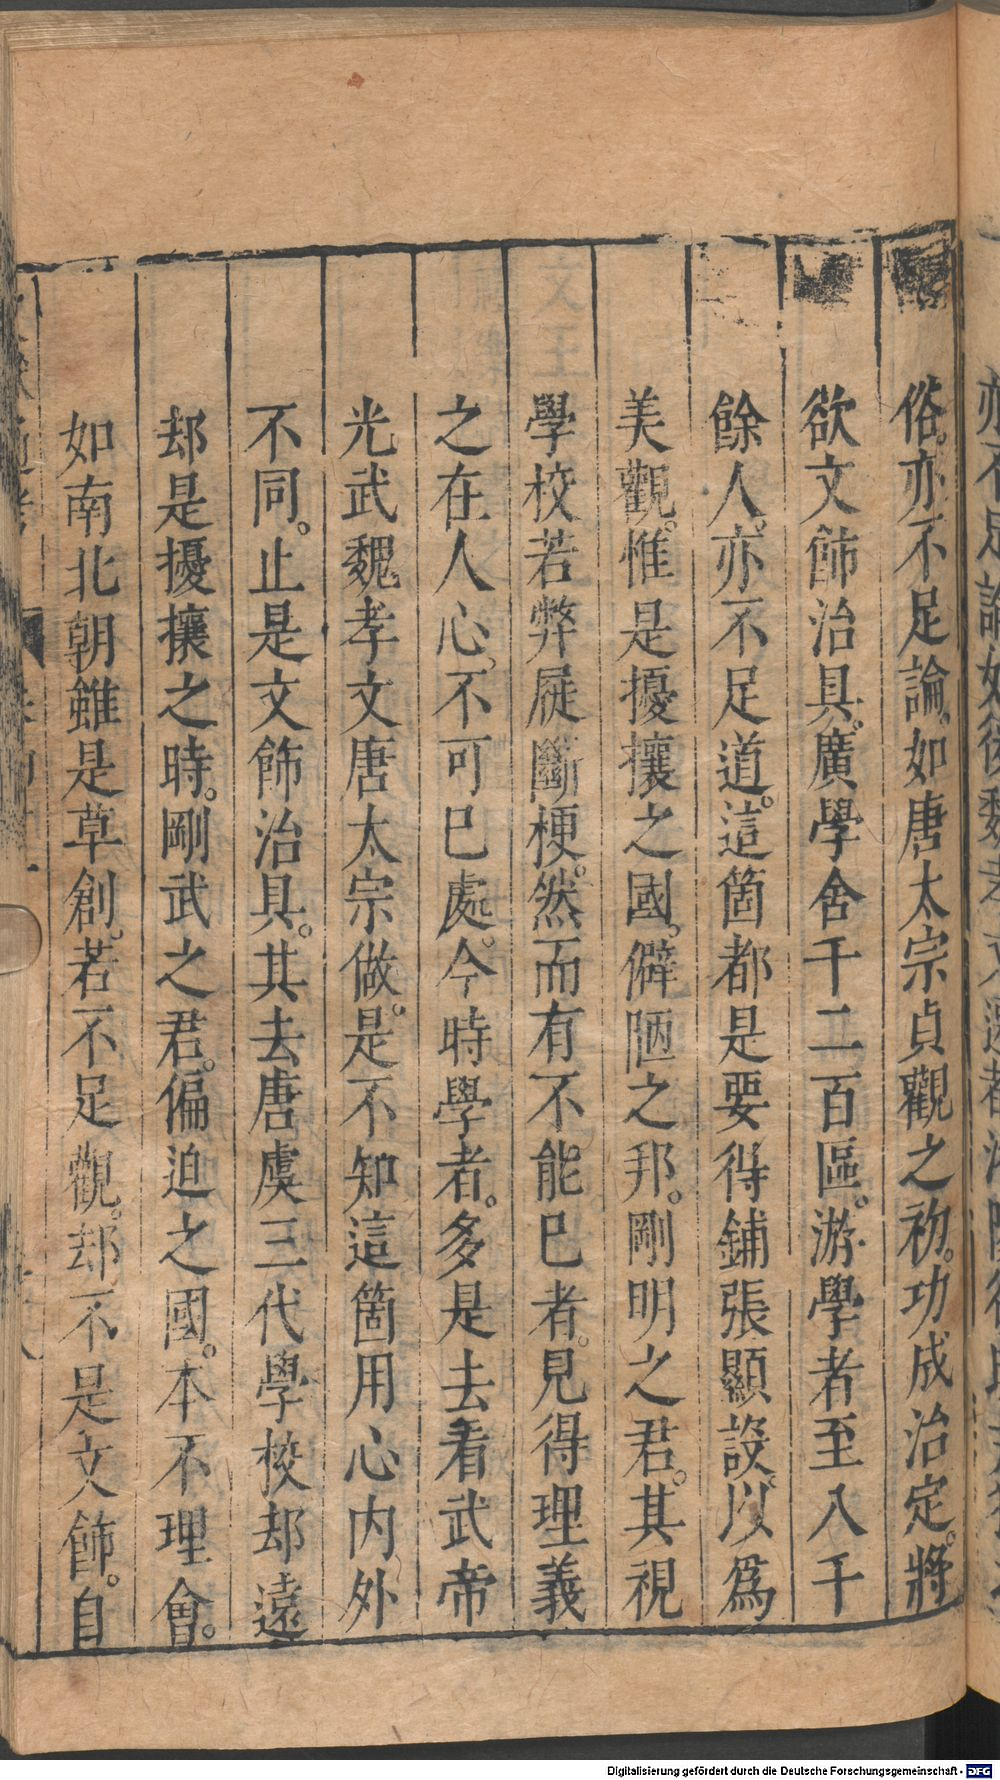 俗。亦不足論。如唐太宗貞觀之初。功成治定。將
欲文飾治具。廣學舍千二百區。游學者至八千
餘人。亦不足道。這箇都是要得鋪張顯設。以爲
美觀。惟是擾攘之國。僻陋之邦。剛明之君。其視
學校若弊屣斷梗。然而有不能已者。見得理義
之在人心。不可已處。今時學者。多是去看武帝
光武魏孝文唐太宗做。是不知這箇用心內外
不同。止是文飾治具。其去唐虞三代學校却遠
却是擾攘之時。剛武之君。偏迫之國。本不理會。
如南北朝雖是草創。若不足觀。却不是文飾。自
Digitalisierung gefördert durch die Deutsche Forschungsgemeinschaft - DFG